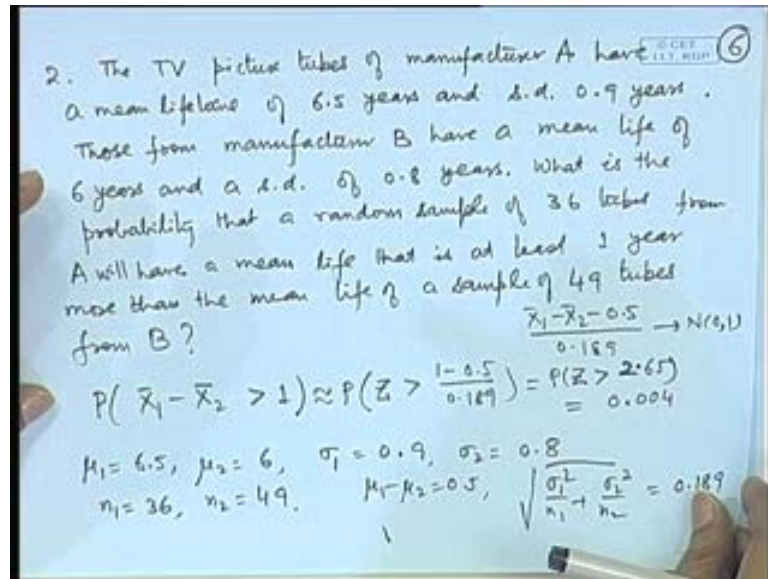 © CET
I.I.T. KGP
6
2. The TV picture tubes of manufacturer A have
a mean lifetime of 6.5 years and s.d. 0.9 years.
Those from manufacturer B have a mean life of
6 years and a s.d. of 0.8 years. What is the
probability that a random sample of 36 tubes from
A will have a mean life that is at least 1 year
more than the mean life of a sample of 49 tubes
from B?
(X̄₁ − X̄₂ − 0.5) / 0.189 → N(0,1)
P( X̄₁ − X̄₂ > 1) ≈ P(Z > (1−0.5)/0.189) = P(Z > 2.65)
= 0.004
μ₁ = 6.5, μ₂ = 6, σ₁ = 0.9, σ₂ = 0.8
n₁ = 36, n₂ = 49. μ₁−μ₂ = 0.5, √(σ₁²/n₁ + σ₂²/n₂) = 0.189